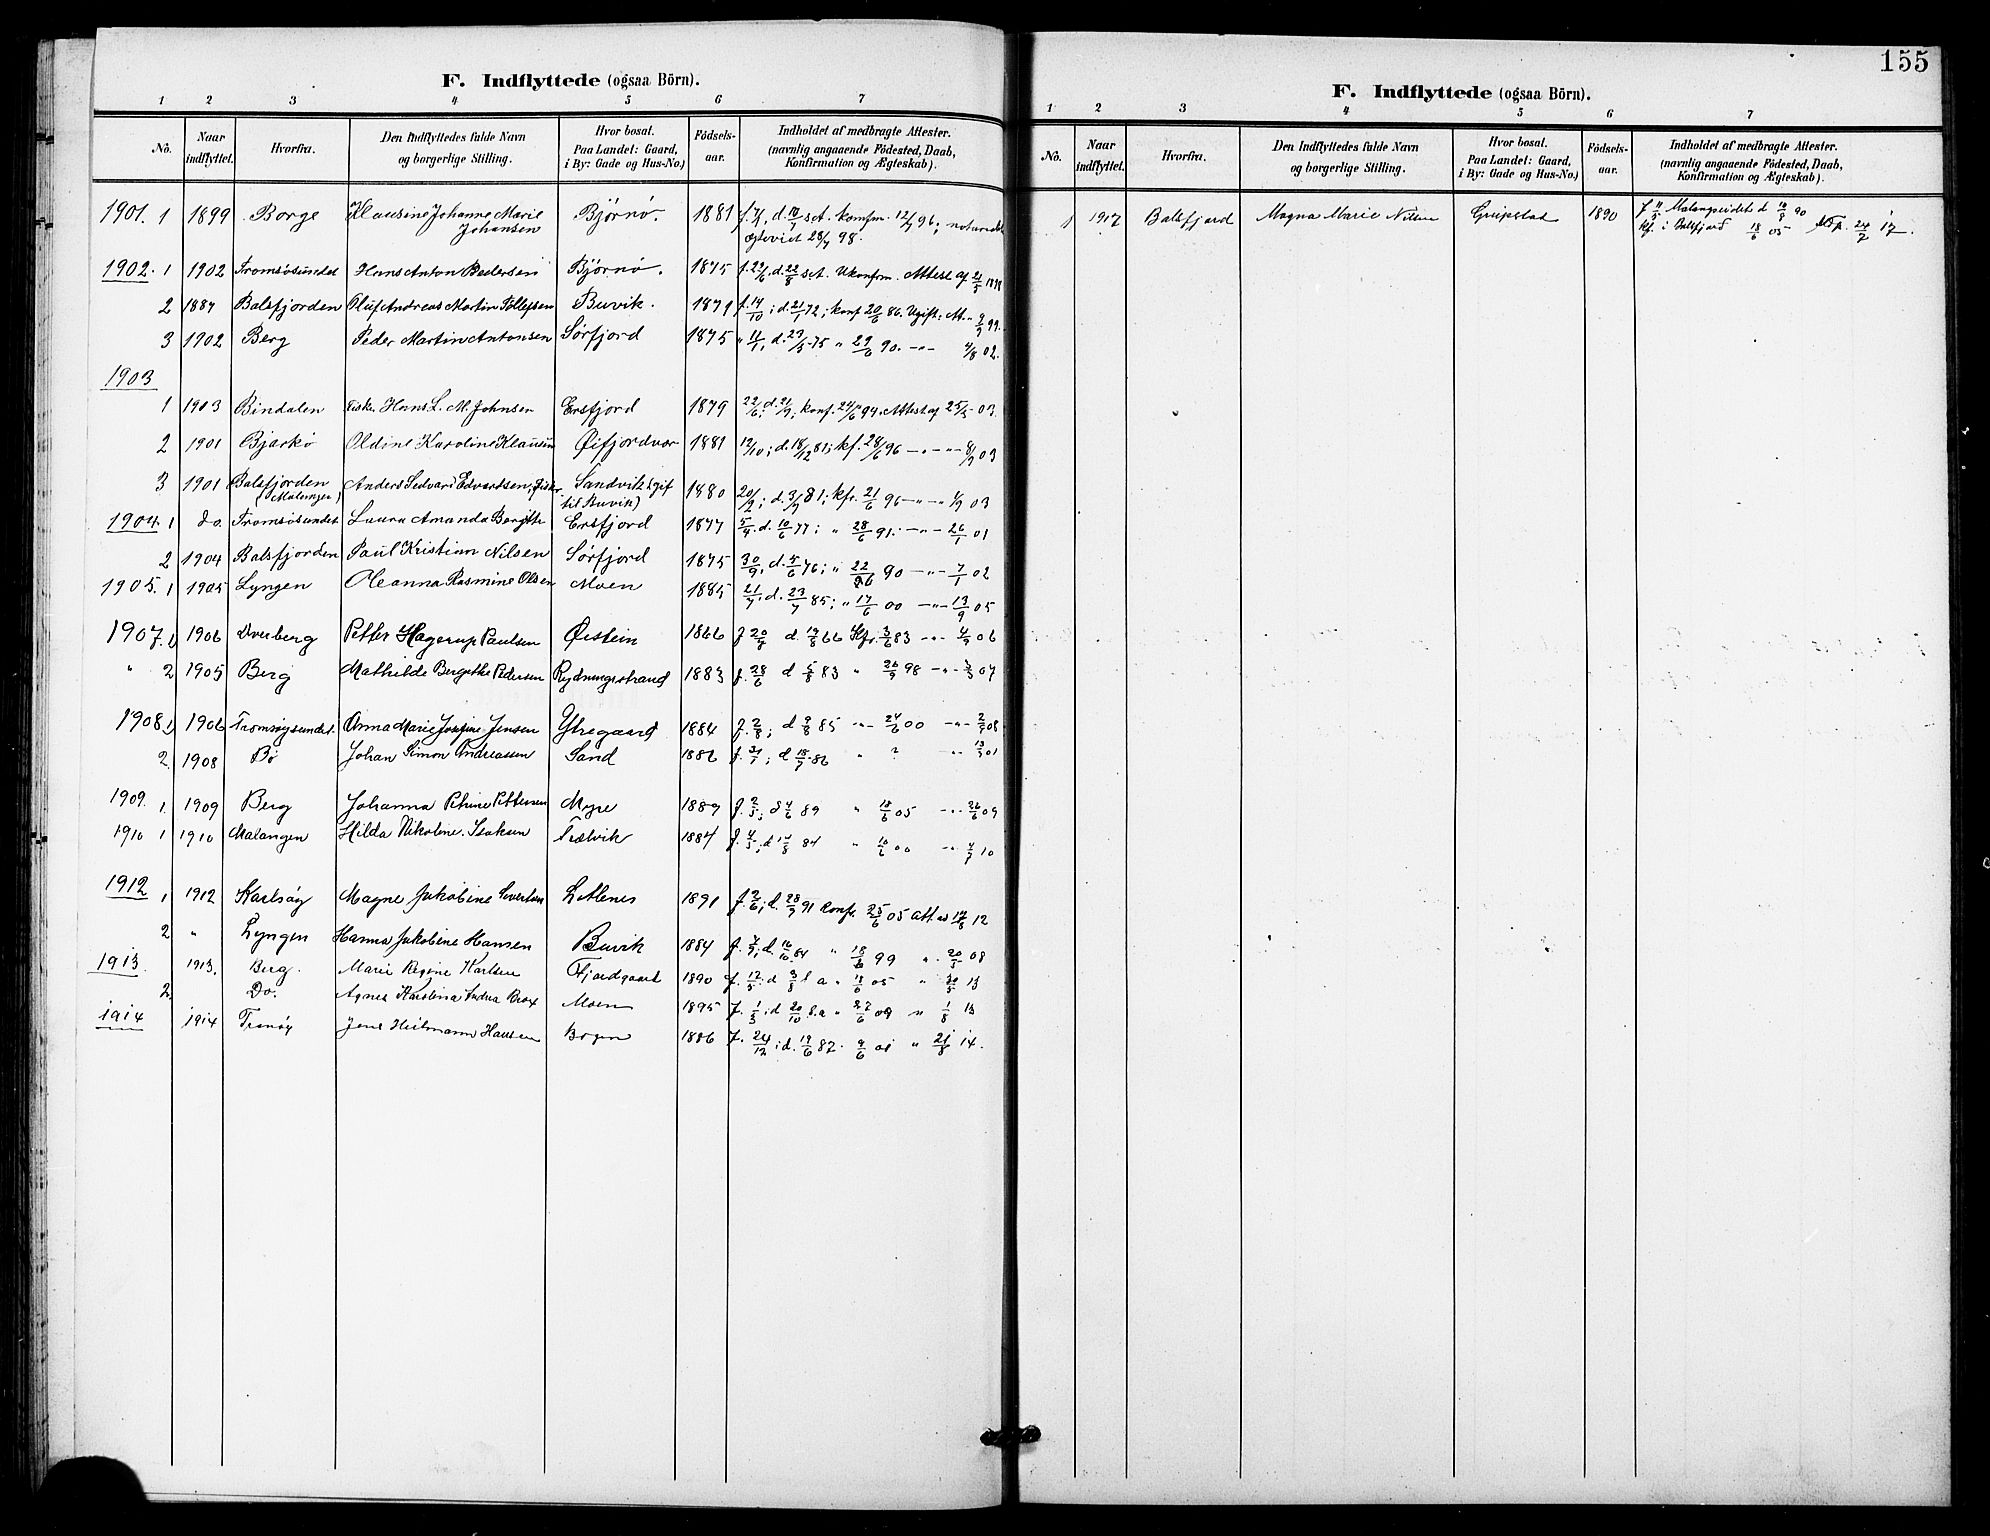 155
F. Indflyttede (ogsaa Börn).
1 2 3 4 5 6 7
No. Naar indflyttet. Hvorfra. Den Indflyttedes fulde Navn og borgerlige Stilling. Hvor bosat. Paa Landet: Gaard, i By: Gade og Hus-No.) Födsels-aar. Indholdet af medbragte Attester. (navnlig angaaende Födested, Daab, Konfirmation og Ægteskab).
1901. 1 1899 Borge Klausine Johanne Marie Johansen Bjørnø. 1881 konfm. 12/7 96;
28/7 98.
1902. 1 1902 Tromsøsundet Hans Anton Pedersen Bjørnø. 1875 f. 29/6 d. 22/8 s.A. Ukonfrm. Attest af 21/5 1898
2 1887 Balsfjorden Oluf Andreas Martin Tollefsen Buvik. 1871 f. 14/10; d. 21/1 72; konf 20/6 86. Ugift. At. " 9/9 99.
3 1902 Berg Peder Martin Antonsen Sørfjord 1875 " 11/1, d. 23/5 75 " 29/6 90. -"- 4/8 02.
1903
1 1903 Bindalen Fisk. Hans L. M. Johnsen Ersfjord 1879 22/6; d. 21/9; konf. 24/6 94. Attest af 25/5 03.
2 1901 Bjarkö Oldine Karoline Klausen Øifjordvær 1881 12/10; d. 18/12 81; kf. 28/6 96 -"- -"- 4/9 03
3 1901 Balsfjorden (Malangen) Anders Sedvard Edvardsen, Fisker Sandvik (gift til Buvik) 1880 20/2; d. 3/7 81; kfr. 21/6 96 -"- -"- 4/9 03
1904. 1 do. Tromsøsundet Laura Amanda Bergitte Ersfjord 1877 5/4 d. 10/6 77; " 28/6 91. -"- 26/1 01
2 1904 Balsfjorden Paul Kristian Nilsen Sørfjord 1875 30/9, d. 5/6 76; " 22/6 90 -"- 7/1 02
1905. 1 1905 Lyngen Oleanna Rasmine Olsen Moen 1885 21/7, d. 23/7 85; " 17/6 00 -"- 13/9 05
1907. 1 1906 Dverberg Petter Hagerup Paulsen Øistein 1866 f 20/7 d. 19/8 66 Kfr. 3/6 83 -"- 4/9 06
" 2 1905 Berg Mathilde Bergithe Pedersen Rydningsstrand 1883 f. 28/6 d 5/8 83 " 26/9 98 -"- 3/3 07
1908. 1 1906 Tromsøysundet. Anna Marie Josefine Jensen Ytregaard 1884 f. 2/8; d 9/8 85 -"- 24/6 00 -"- 2/7 08
2. 1908 Bø Johan Simon Andreassen Sand 1886 f. 31/1; d 18/7 86 " ? -"-
1909. 1. 1909 Berg Johanna Petrine Pettersen Myre 1889 f. 2/5; d 4/6 89 " 18/6 05 -"- 26/6 09
1910 1 1910 Malangen Hilda Nikoline Isaksen Trælvik 1884 f. 4/5; d 17/8 84 " 10/6 00 -"- 4/7 10
1912 1 1912 Karlsøy Magne Jakobine Lettenes 1891 f. 2/6; d. 28/9 91 Konf. 25/6 05 Att. av 17/8 12
2 " Lyngen Hanna Jakobine Hansen Buvik 1884 f. 7/9, d. 16/10 84 " 18/6 99 " 20/5 08
1913 1913. Berg. Marie Regine Karlsen Fjordgaard 1890 f. 12/5; d 3/8 s a " 18/6 05 " 30/5 13
2. Do. Agnes Karolina Andrea Moen 1895 f. 1/3; d 20/10 s. a " 27/6 09 " 1/8 13
1914 1914 Tranøy Jens Heitmann Hansen Bogen 1886 f. 24/12; d. 19/6 87. 9/6 01 " 21/8 14.
F. Indflyttede (ogsaa Börn).
1 2 3 4 5 6 7
No. Naar indflyttet. Hvorfra. Den Indflyttedes fulde Navn og borgerlige Stilling. Hvor bosat. Paa Landet: Gaard, i By: Gade og Hus-No.) Födsels-aar. Indholdet af medbragte Attester. (navnlig angaaende Födested, Daab, Konfirmation og Ægteskab).
1 1917 Balsfjord Magna Marie Nilsen Grupstad 1890 f 11/5 Malangseidet d 10/8 90
kf. i Balsfjord 18/6 05 24/7 17.